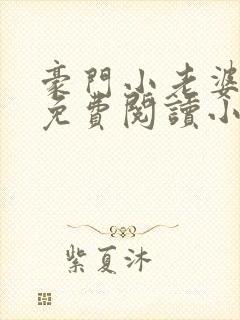 豪門小老婆
免費閱讀小
紫夏沐